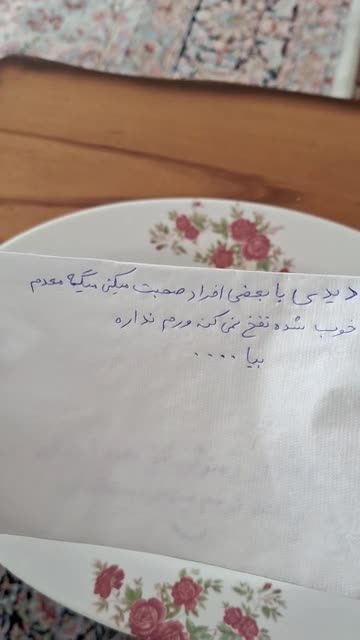 دیدی با بعضی افراد صحبت میکنی میگه معدم
خوب شده نفخ نمی کنه ورم نداره
بیا ....